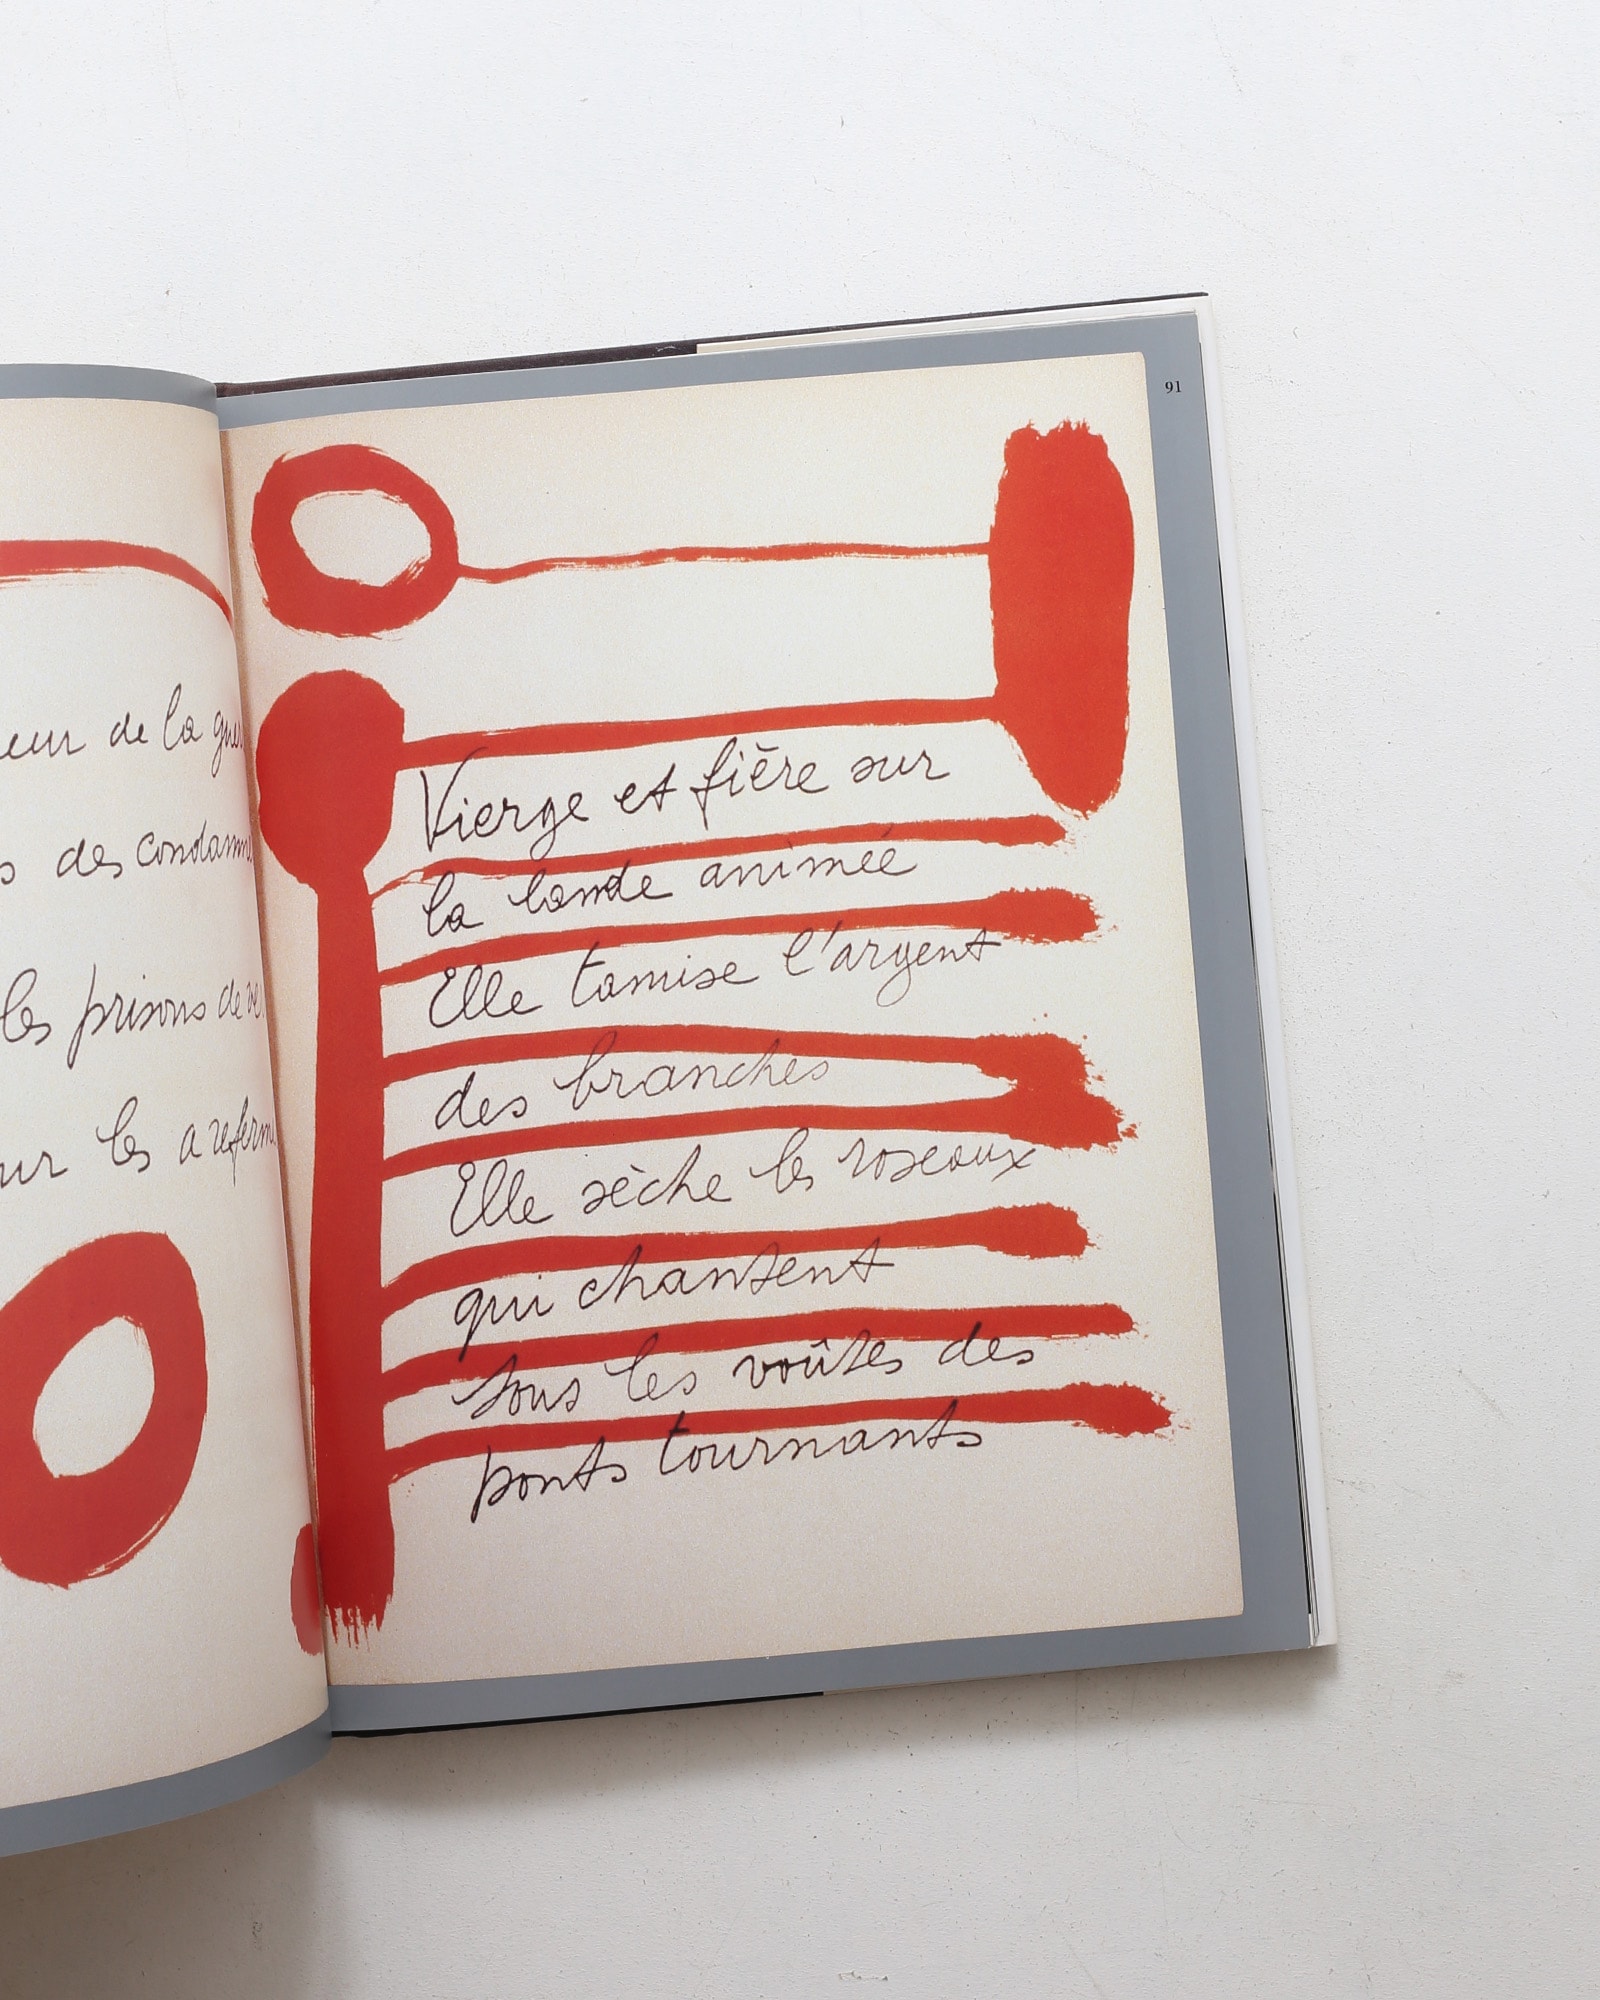 de la
des
les prisons de
les a
91
Vierge et fière sur
la bande animée
Elle tamise l'argent
des branches
Elle sèche les roseaux
qui chantent
sous les voûtes des
ponts tournants